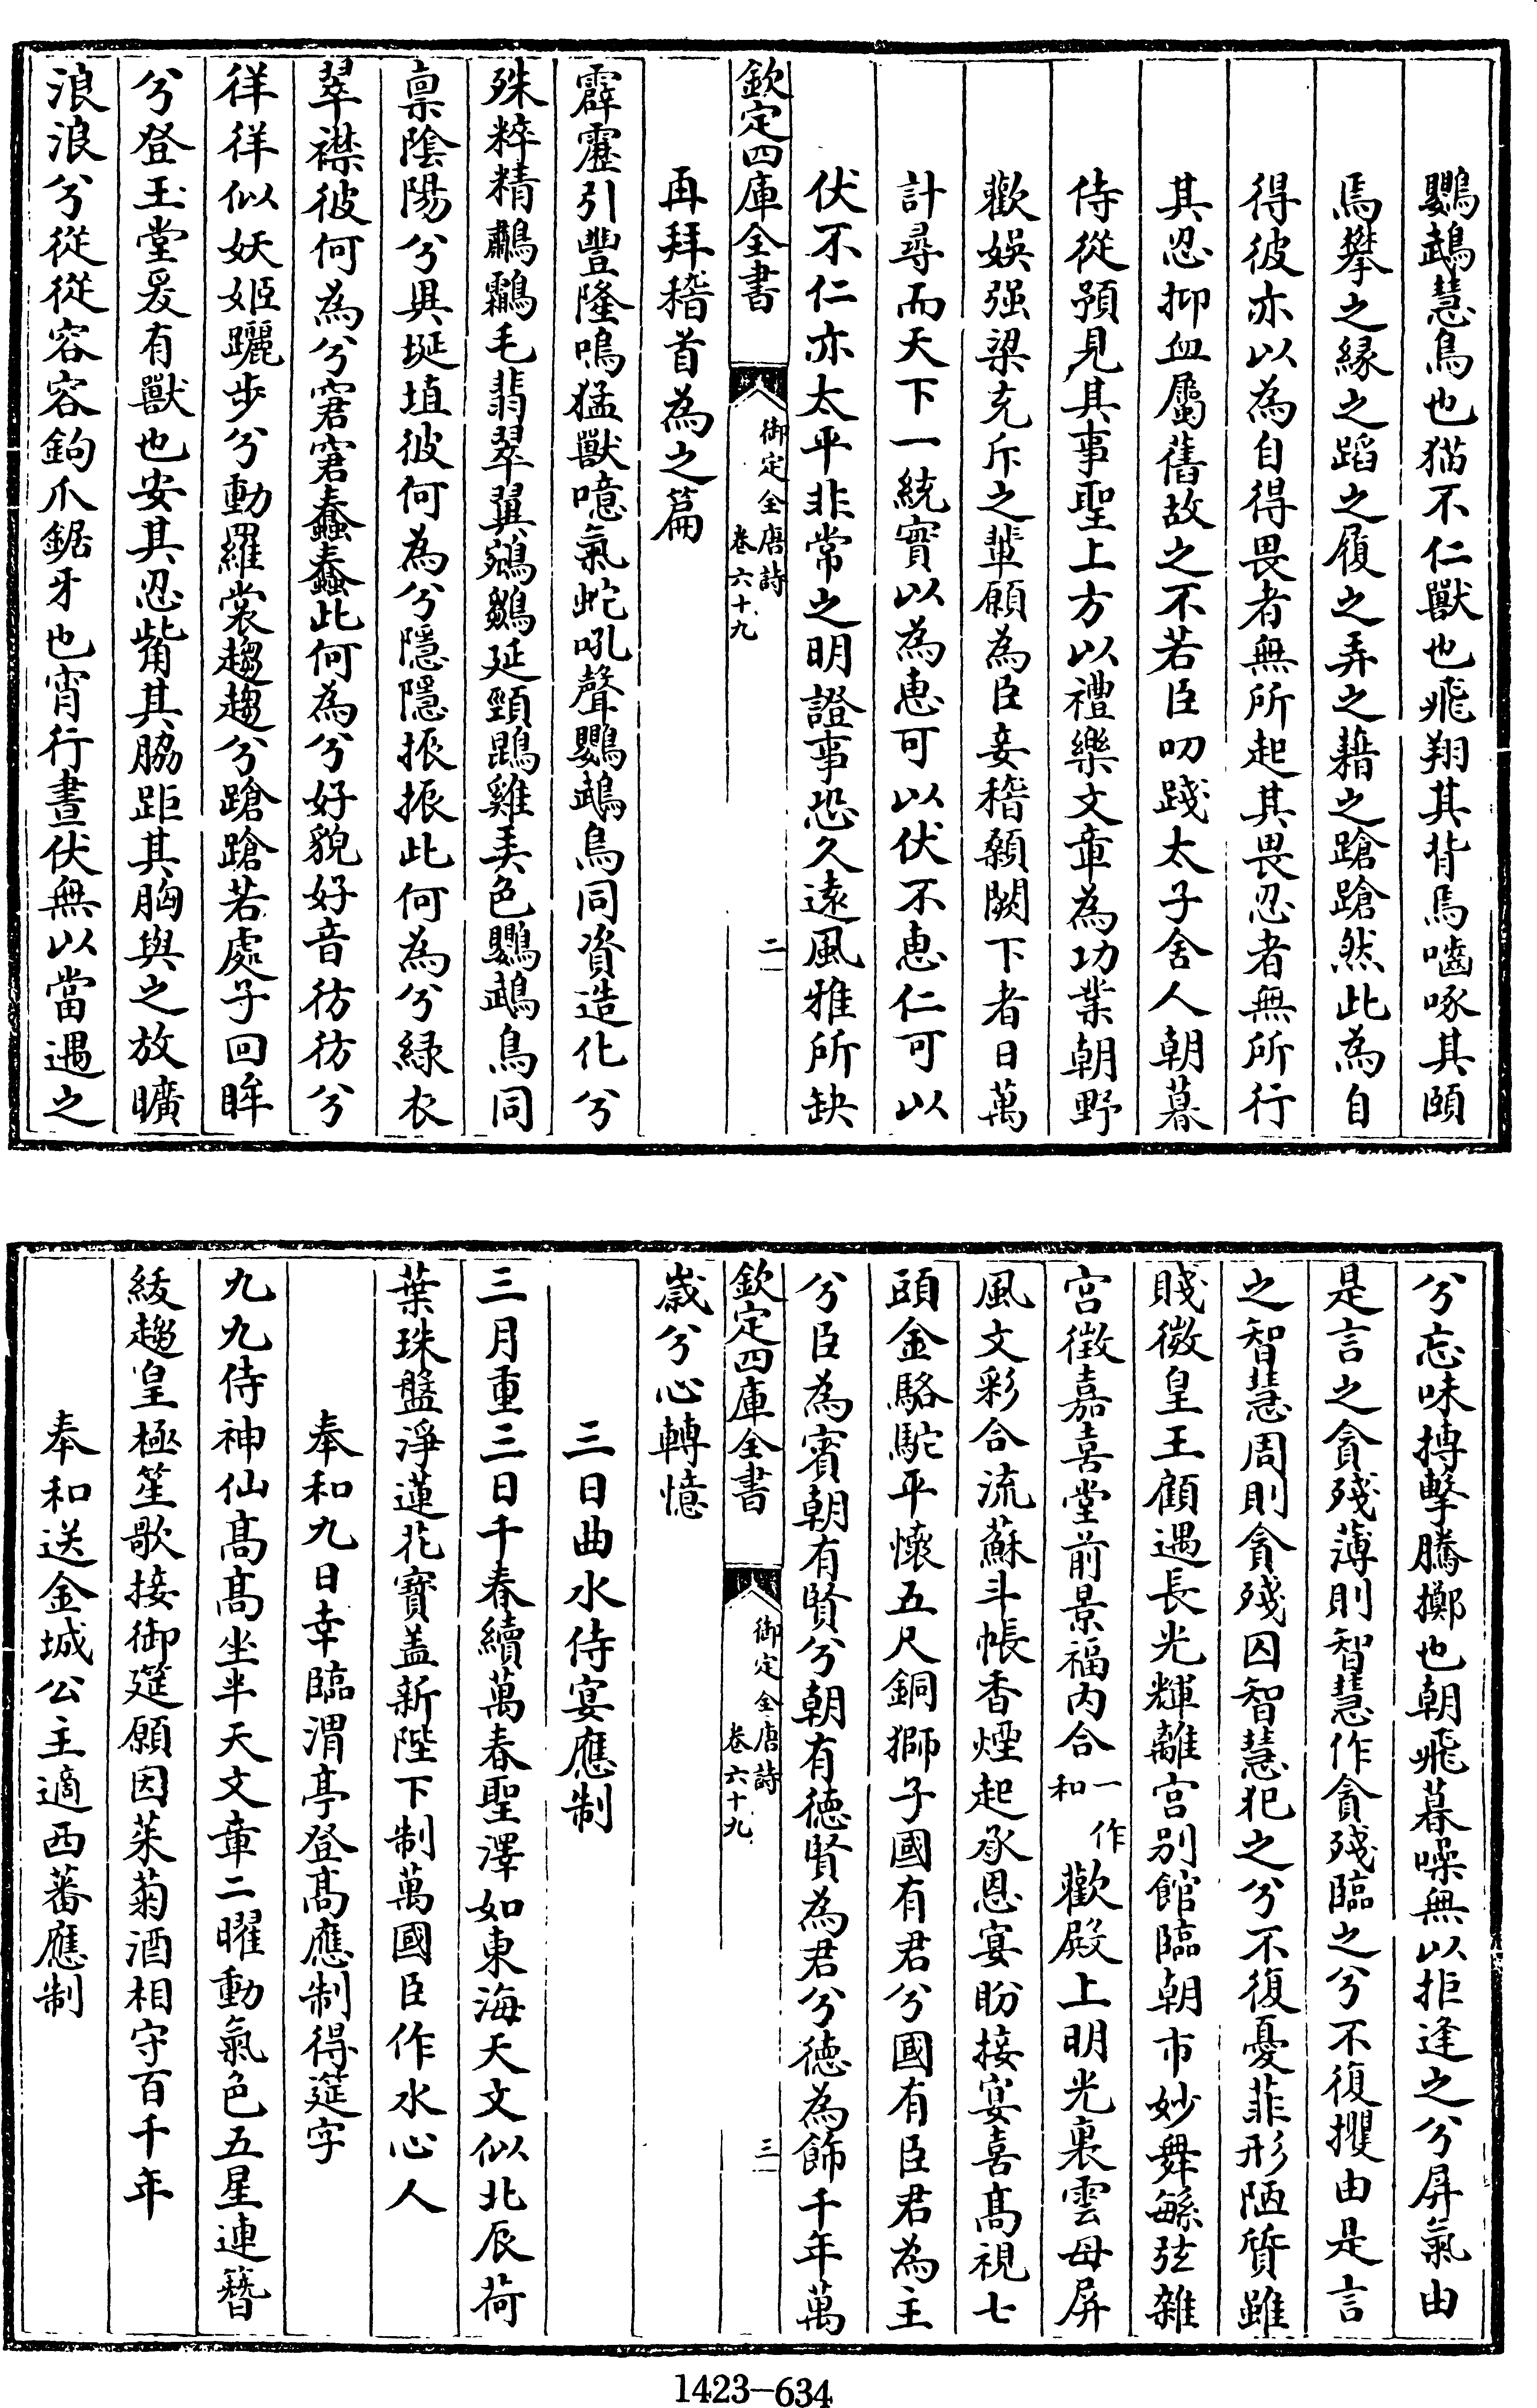 鸚鵡慧鳥也猫不仁獸也飛翔其背焉嚙啄其頤
焉攀之緣之蹈之履之弄之藉之蹌蹌然此為自
得彼亦以為自得畏者無所起其畏忍者無所行
其忍抑血屬舊故之不若臣叨踐太子舍人朝暮
侍從預見其事聖上方以禮樂文章為功業朝野
歡娛强梁充斥之輩願為臣妾稽顙闕下者日萬
計尋而天下一統實以為惠可以伏不惠仁可以
伏不仁亦太平非常之明證事恐久遠風雅所缺
欽定四庫全書
御定全唐詩
卷六十九
二
再拜稽首為之篇
霹靂引豐隆鳴猛獸噫氣蛇吼聲鸚鵡鳥同資造化兮
殊粹精鷫鷞毛翡翠翼鵷鶵延頸鵾雞美色鸚鵡鳥同
稟陰陽兮異埏埴彼何為兮隱隱振振此何為兮緑衣
翠襟彼何為兮窘窘蠢蠢此何為兮好貌好音彷彷兮
徉徉似妖姬躧步兮動羅裳趨趨兮蹌蹌若處子回眸
兮登玉堂爰有獸也安其忍觜其脇距其胸與之放曠
浪浪兮從從容容鉤爪鋸牙也宵行晝伏無以當遇之
兮忘味搏擊騰擲也朝飛暮噪無以拒逢之兮屏氣由
是言之貪殘薄則智慧作貪殘臨之兮不復攫由是言
之智慧周則貪殘囚智慧犯之兮不復憂菲形陋質雖
賤微皇王顧遇長光輝離宮别館臨朝市妙舞繁弦雜
宫徵嘉喜堂前景福内合一作和歡殿上明光裏雲母屏
風文彩合流蘇斗帳香煙起承恩宴盼接宴喜髙視七
頭金駱駝平懷五尺銅獅子國有君兮國有臣君為主
兮臣為賓朝有賢兮朝有德賢為君兮德為飾千年萬
欽定四庫全書
御定全唐詩
卷六十九
三
歲兮心轉憶
三日曲水侍宴應制
三月重三日千春續萬春聖澤如東海天文似北辰荷
葉珠盤淨蓮花寶盖新陛下制萬國臣作水心人
奉和九日幸臨渭亭登髙應制得筵字
九九侍神仙髙髙坐半天文章二曜動氣色五星連簪
紱趨皇極笙歌接御筵願因茱菊酒相守百千年
奉和送金城公主適西蕃應制
1423-634